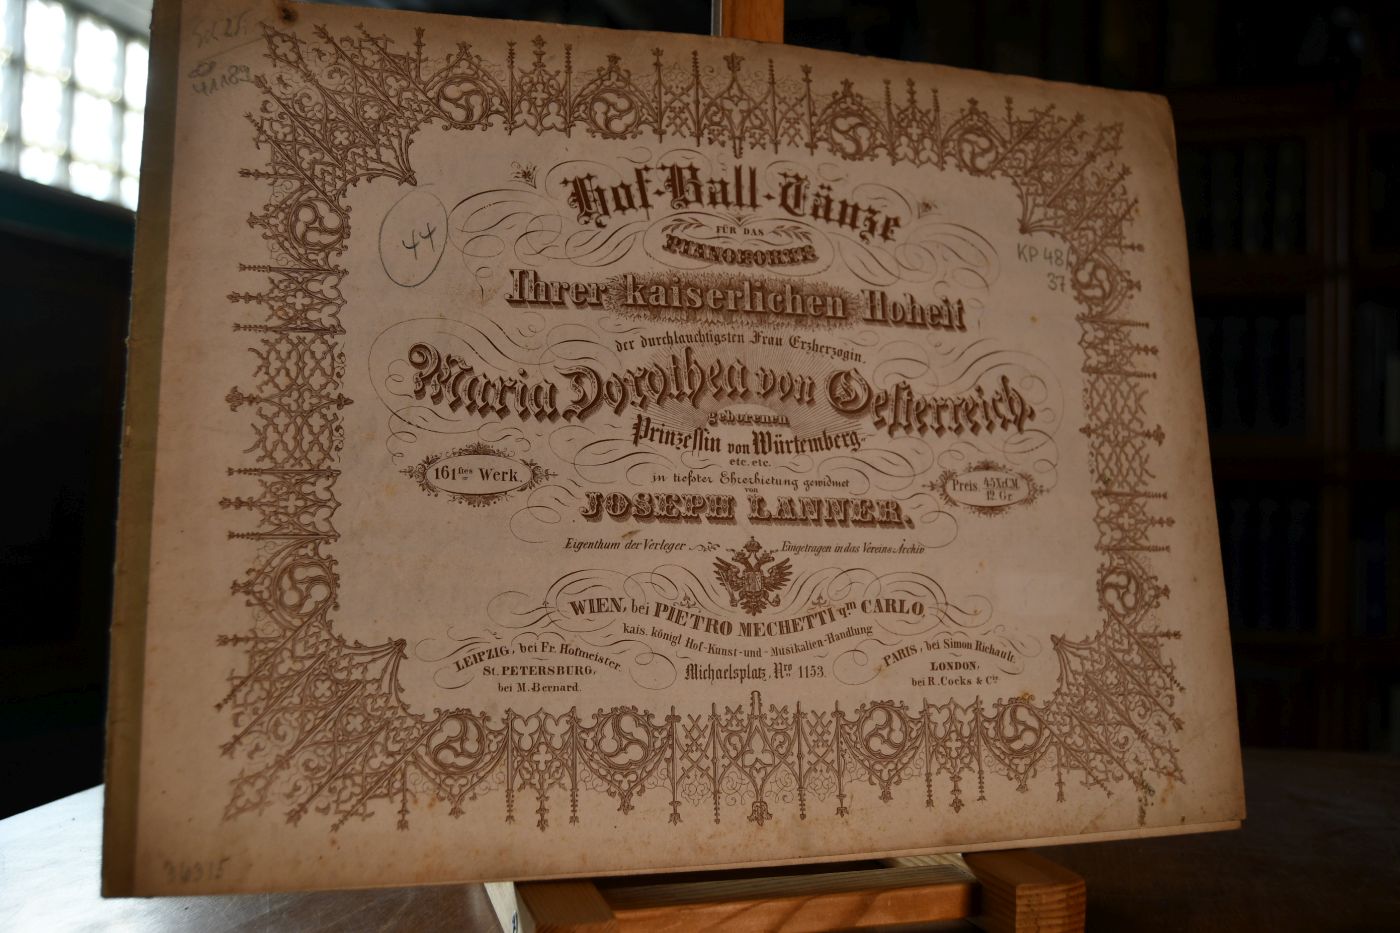 44
KP 48/
37
Hof-Ball-Tänze
FÜR DAS
PIANOFORTE
Ihrer kaiserlichen Hoheit
der durchlauchtigsten Frau Erzherzogin,
Maria Dorothea von Oesterreich,
geborenen
Prinzessin von Würtemberg
etc. etc.
in tiefster Ehrerbietung gewidmet
von
JOSEPH LANNER.
161stes Werk.
Preis. 45 Xr. C.M.
12 Gr.
Eigenthum der Verleger
Eingetragen in das Vereins-Archiv
WIEN, bei PIETRO MECHETTI qm CARLO,
kais. königl. Hof-Kunst-und-Musikalien-Handlung
Michaelsplatz, Nro 1153.
LEIPZIG, bei Fr. Hofmeister.
St. PETERSBURG,
bei M. Bernard.
PARIS, bei Simon Richault.
LONDON,
bei R. Cocks & Cie
36315